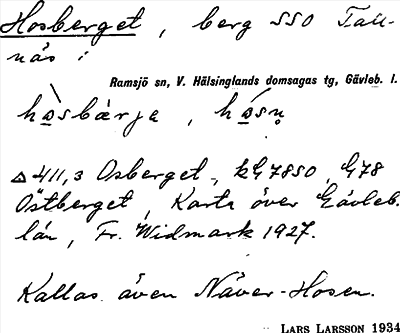 Hosberget, berg SSO Tall-
näs i
Ramsjö sn, V. Hälsinglands domsagas tg, Gävleb. l.
hòsbärje, hósn̥
△ 411,3 Osberget, kG7850, G78
Östberget, Karta över Gävleb.
län, Fr. Widmark 1927.
Kallas även Näver-Hosen.
LARS LARSSON 1934